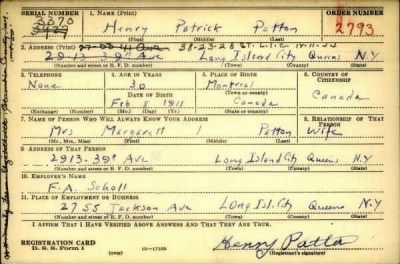 SERIAL NUMBER 1. NAME (Print) ORDER NUMBER
3070
3429
Henry Patrick Patton 2793
(First) (Middle) (Last)
2. ADDRESS (Print)
38-23-28
2913 39th Ave Long Island City Queens N.Y
(Number and street or R. F. D. number) (Town) (County) (State)
3. TELEPHONE 4. AGE IN YEARS 5. PLACE OF BIRTH 6. COUNTRY OF CITIZENSHIP
None 30 Montreal
DATE OF BIRTH (Town or county)
Feb 8 1911 Canada Canada
(Exchange) (Number) (Mo.) (Day) (Yr.) (State or country)
7. NAME OF PERSON WHO WILL ALWAYS KNOW YOUR ADDRESS 8. RELATIONSHIP OF THAT PERSON
Mrs Margarett I Patton Wife
(Mr., Mrs., Miss) (First) (Middle) (Last)
9. ADDRESS OF THAT PERSON
2913-39th Ave Long Island City Queens N.Y
(Number and street or R. F. D. number) (Town) (County) (State)
10. EMPLOYER'S NAME
F.A. Scholl
11. PLACE OF EMPLOYMENT OR BUSINESS
2755 Jackson Ave Long Isl. City Queens N.Y
(Number and street or R. F. D. number) (Town) (County) (State)
I AFFIRM THAT I HAVE VERIFIED ABOVE ANSWERS AND THAT THEY ARE TRUE.
REGISTRATION CARD
D. S. S. Form 1 (over) 16-17105 Henry Patton
(Registrant's signature)